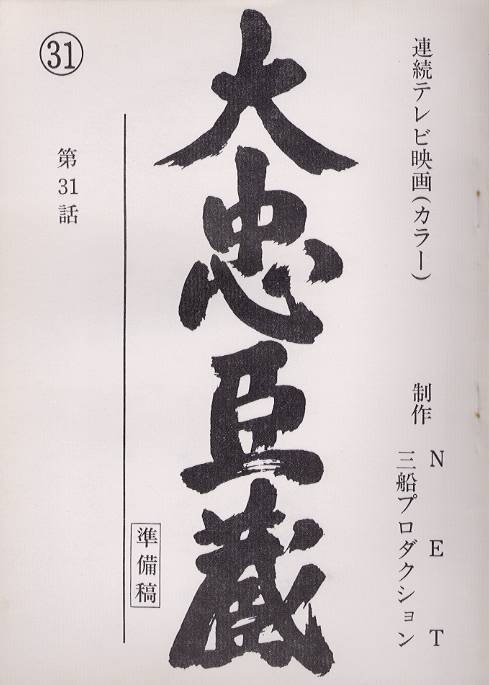 連続テレビ映画(カラー)
制作 NET
三船プロダクション
大忠臣蔵
準備稿
第31話
㉛